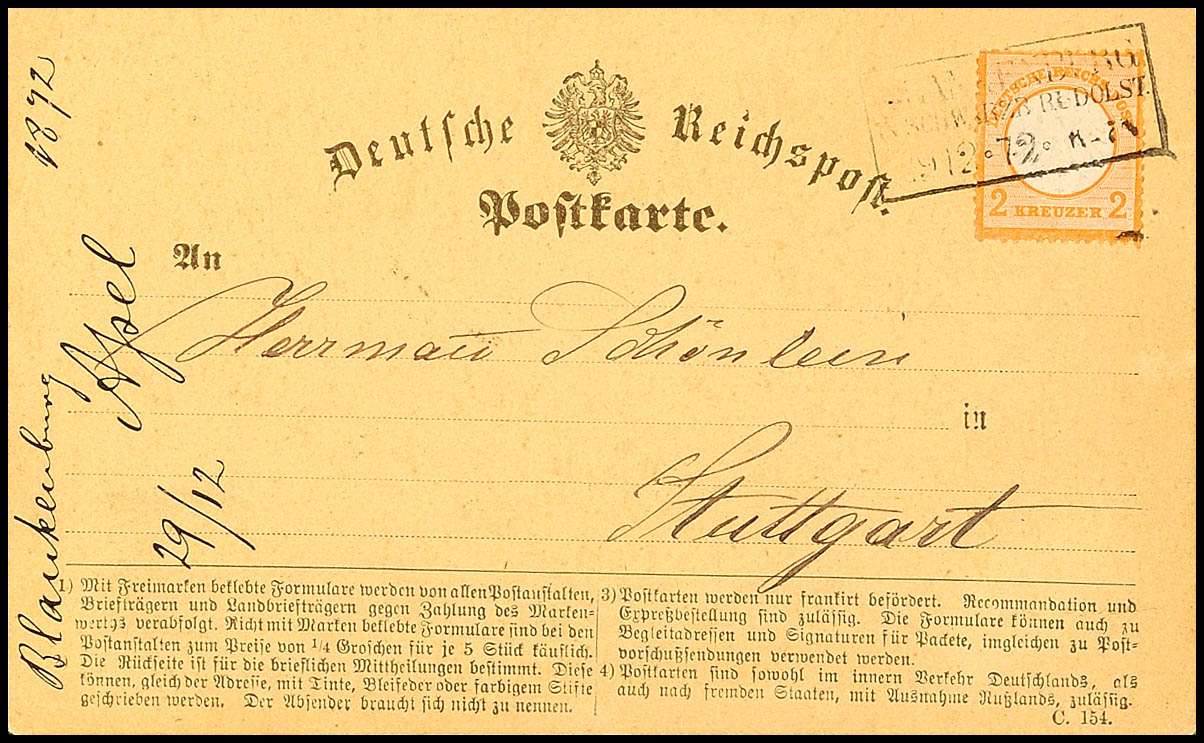 Deutsche Reichspost.
Postkarte.
DEUTSCHE REICHS-POST
2 KREUZER 2
RUDOLST.
1912.72.
An
Herrmann Schönlein
in
Stuttgart
1872
Apel
Blankenburg
29/12
1) Mit Freimarken beklebte Formulare werden von allen Postanstalten,
Briefträgern und Landbriefträgern gegen Zahlung des Marken-
werths verabfolgt. Nicht mit Marken beklebte Formulare sind bei den
Postanstalten zum Preise von 1/4 Groschen für je 5 Stück käuflich.
Die Rückseite ist für die brieflichen Mittheilungen bestimmt. Diese
können, gleich der Adresse, mit Tinte, Bleifeder oder farbigem Stifte
geschrieben werden. Der Absender braucht sich nicht zu nennen.
3) Postkarten werden nur frankirt befördert. Recommandation und
Expreßbestellung sind zulässig. Die Formulare können auch zu
Begleitadressen und Signaturen für Packete, imgleichen zu Post-
vorschußsendungen verwendet werden.
4) Postkarten sind sowohl im innern Verkehr Deutschlands, als
auch nach fremden Staaten, mit Ausnahme Rußlands, zulässig.
C. 154.